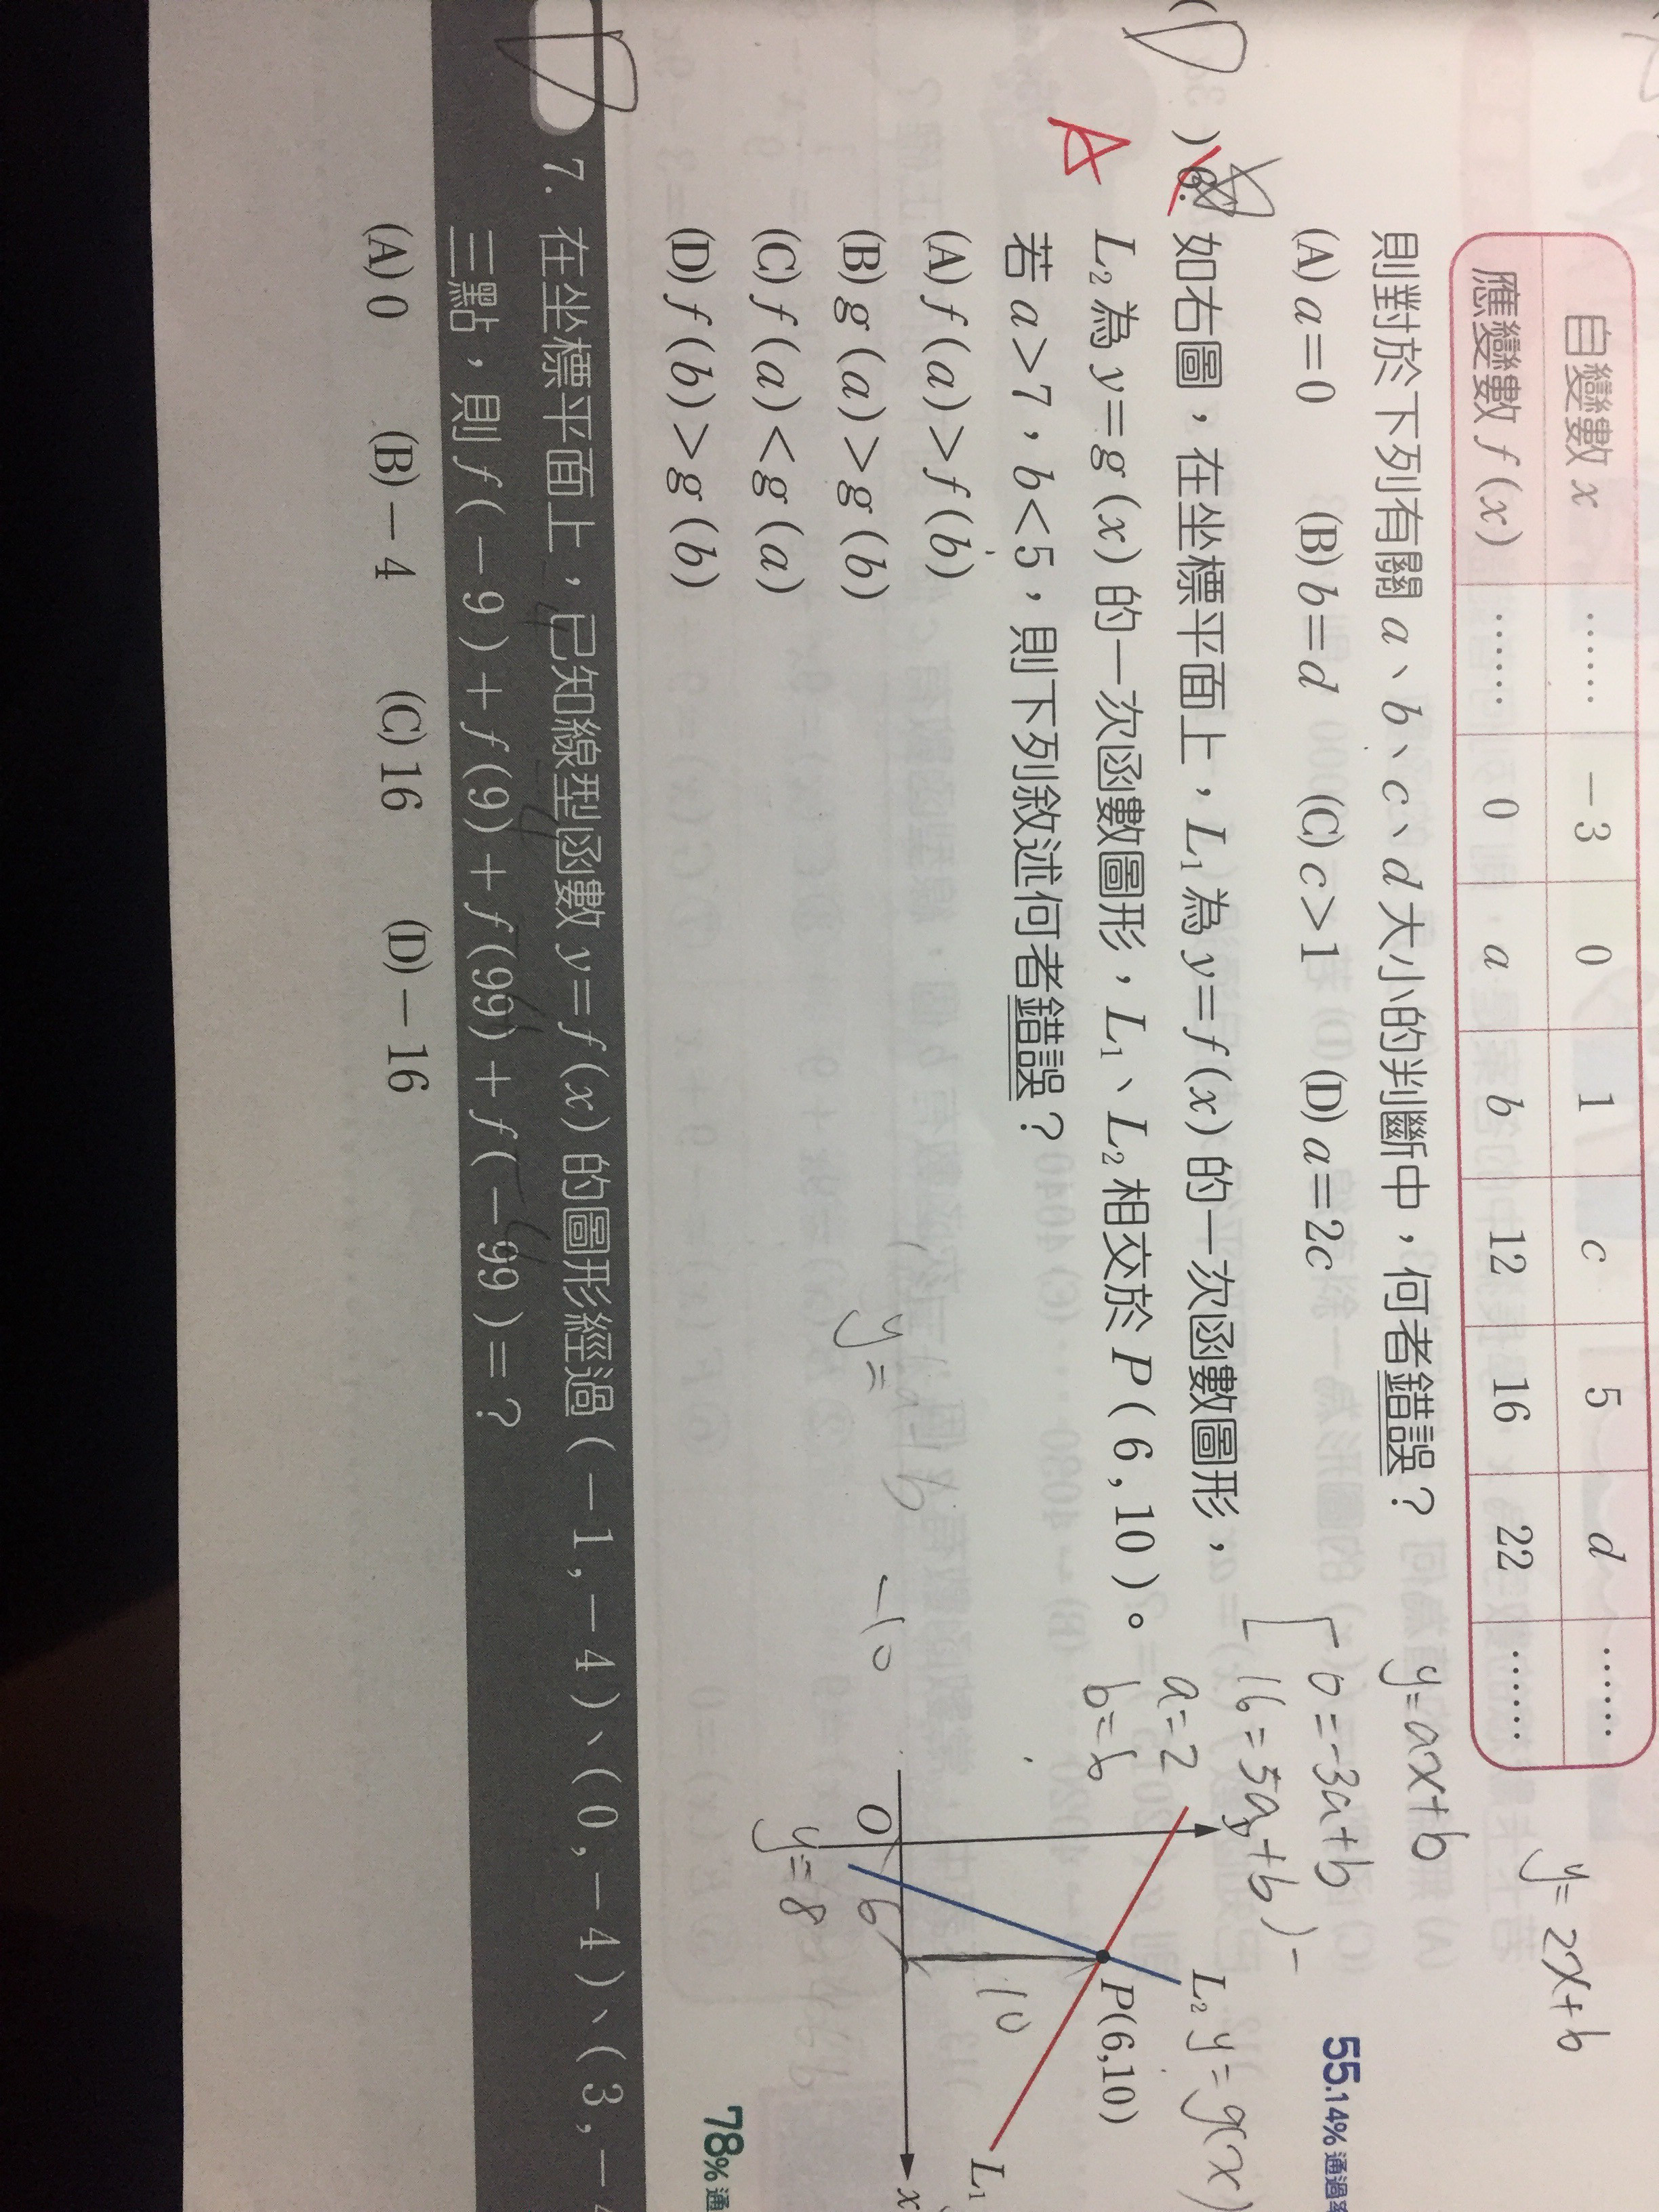 自變數 x …… －3 0 1 c 5 d ……
應變數 f(x) …… 0 a b 12 16 22 ……
y=2x+b
則對於下列有關 a、b、c、d 大小的判斷中，何者錯誤？
y=ax+b
(A) a＝0 (B) b＝d (C) c＞1 (D) a＝2c
0=-3a+b
16=5a+b)-
a=2
b=6
55.14% 通過率
6. 如右圖，在坐標平面上，L₁ 為 y＝f(x) 的一次函數圖形，
L₂ 為 y＝g(x) 的一次函數圖形，L₁、L₂ 相交於 P(6,10)。
若 a＞7，b＜5，則下列敘述何者錯誤？
A
(A) f(a)＞f(b)
(B) g(a)＞g(b)
(C) f(a)＜g(a)
(D) f(b)＞g(b)
L₂ y=g(x)
P(6,10)
10
L₁
x
O
6
y=8
-10
78% 通
7. 在坐標平面上，已知線型函數 y＝f(x) 的圖形經過 (－1,－4)、(0,－4)、(3,－4
三點，則 f(－9)＋f(9)＋f(99)＋f(－99)＝？
(A) 0 (B)－4 (C) 16 (D)－16